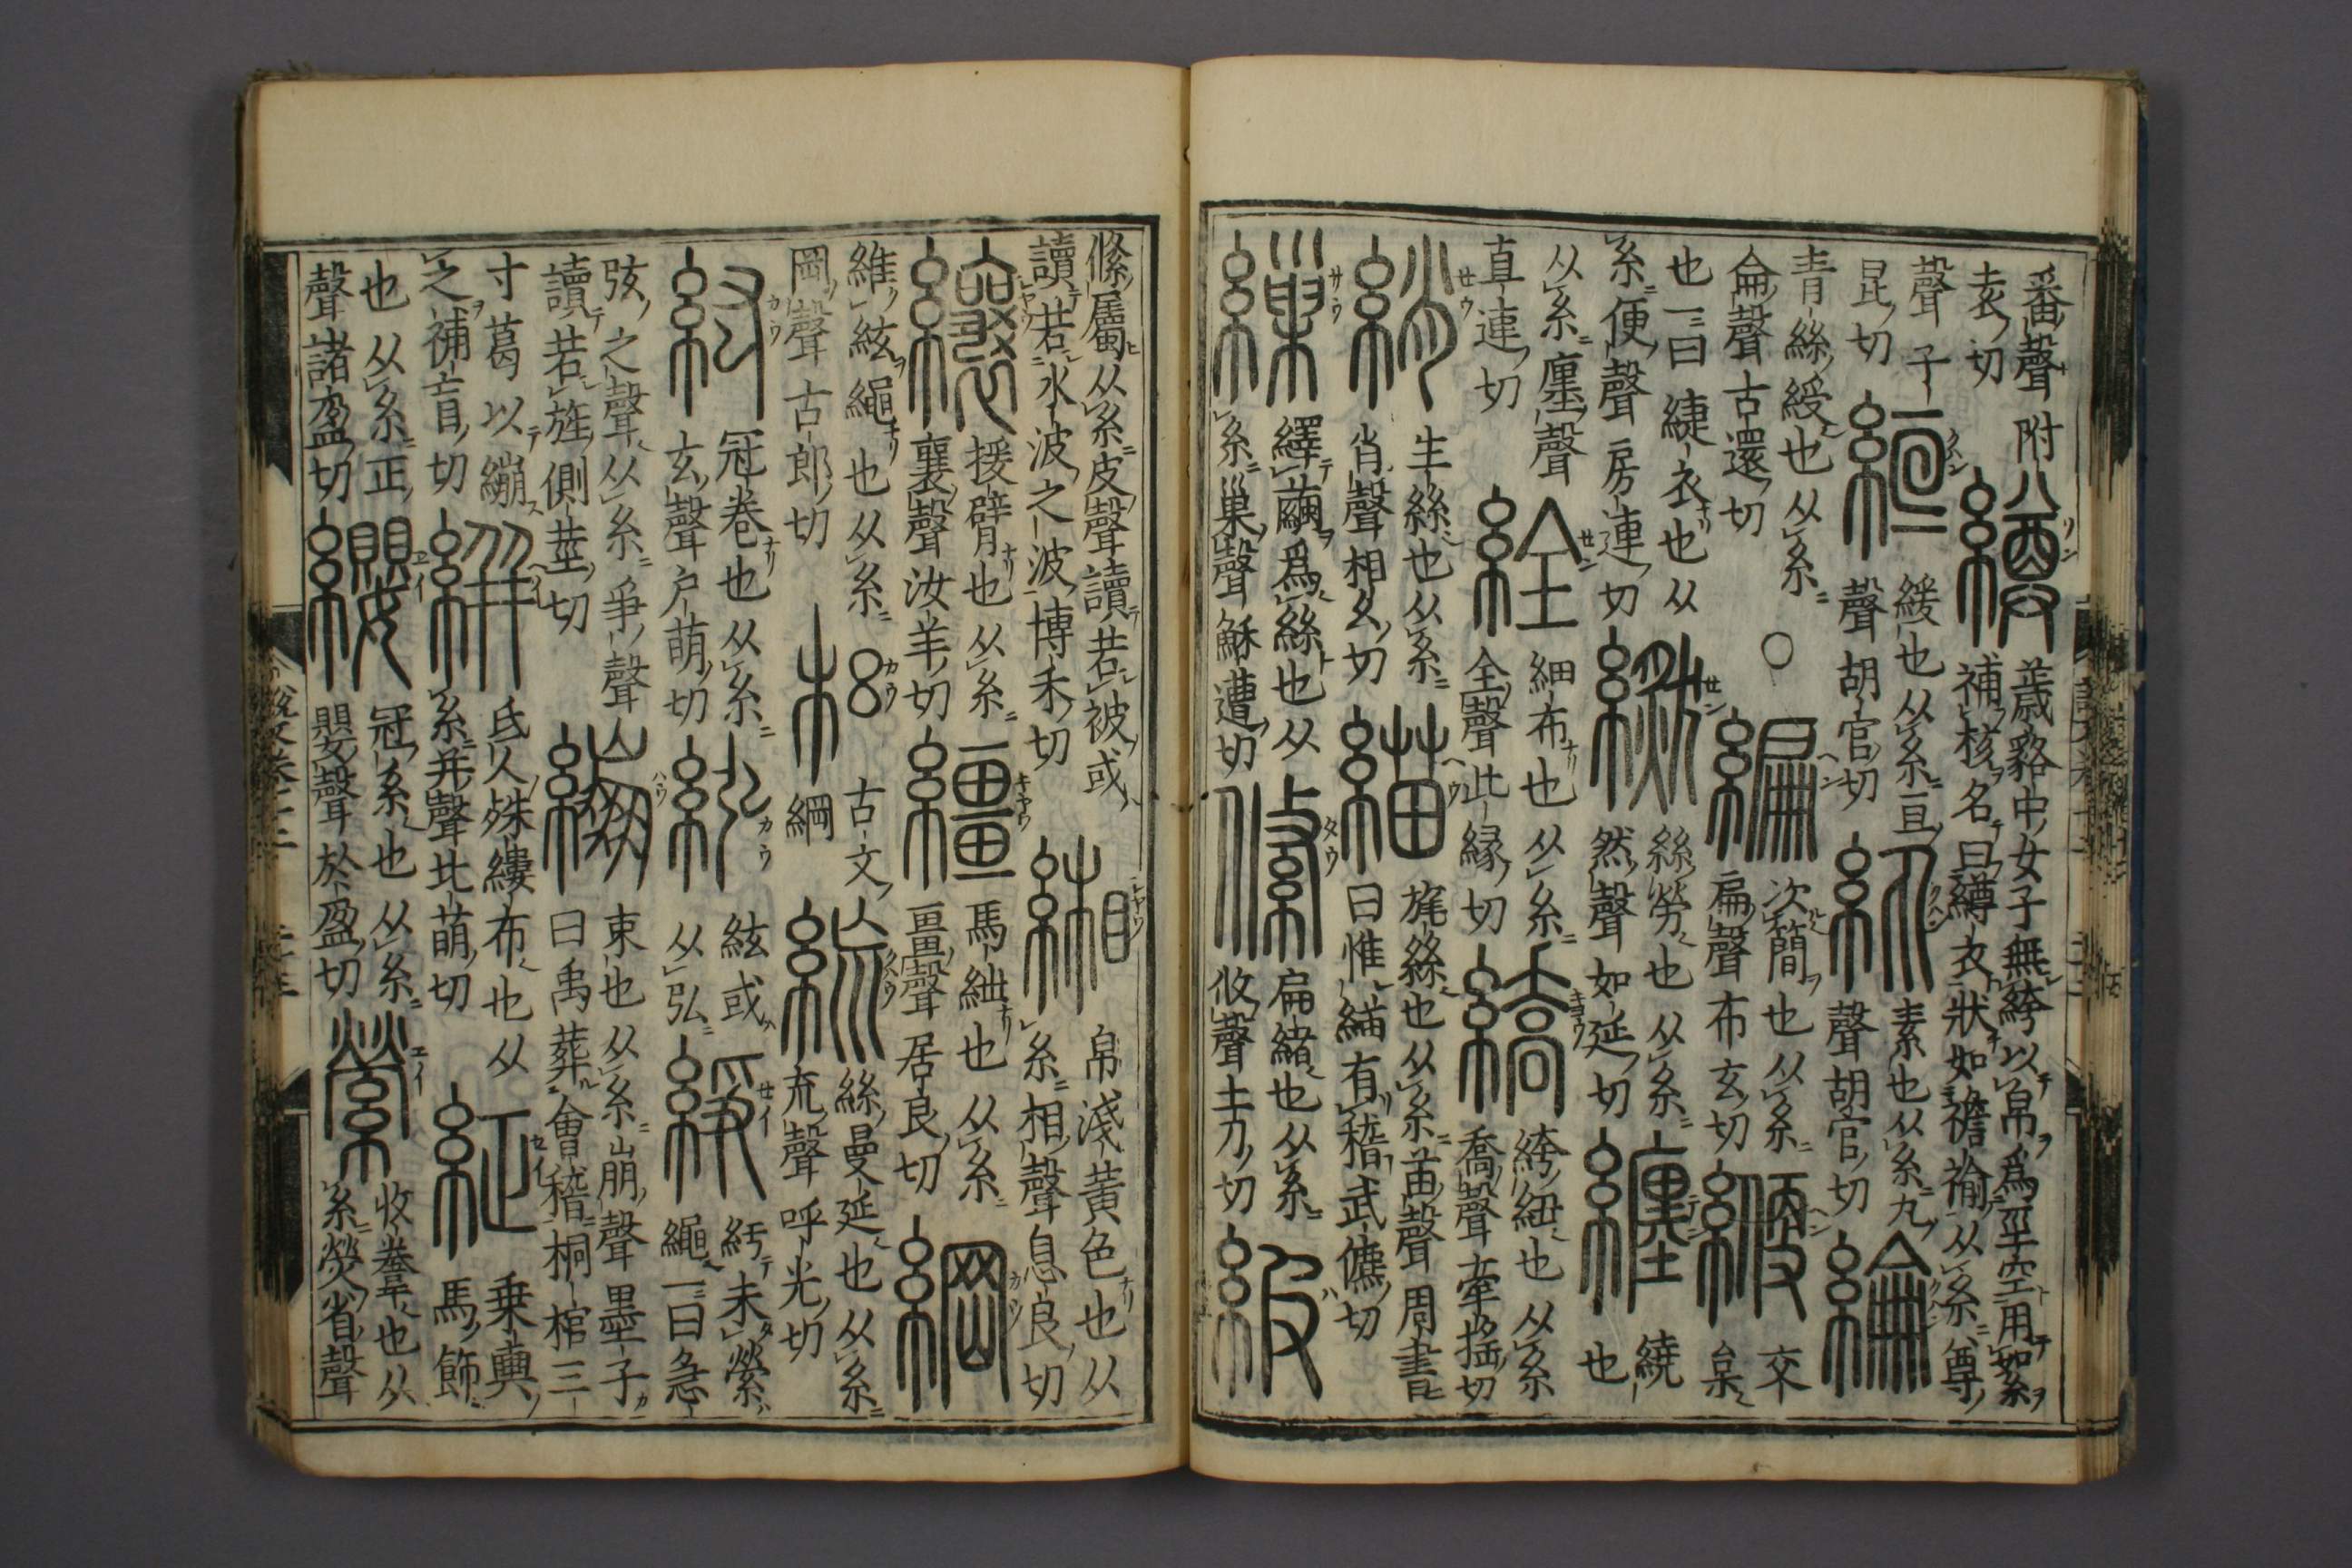 番聲附
袁切
繜
薉貉中女子無絝以帛爲脛空用絮
補核名曰繜衣狀如襜褕从糸尊
聲子
昆切
絙
緩也从糸亘
聲胡官切
紈
素也从糸丸
聲胡官切
綸
青絲綬也从糸
侖聲古還切
○
編
次簡也从糸
扁聲布玄切
緶
交
枲
也一曰緁衣也从
糸便聲房連切
繎
絲勞也从糸
然聲如延切
纏
繞
也
从糸廛聲
直連切
絟
細布也从糸
全聲此緣切
繑
絝紐也从糸
喬聲牽搖切
綃
生絲也从糸
肖聲相幺切
緢
旄絲也从糸苗聲周書
曰惟緢有稽武儦切
繅
繹繭爲絲也从
糸巢聲穌遭切
絛
扁緒也从糸
攸聲土刀切
紴
絛屬从糸皮聲讀若被或
讀若水波之波博禾切
緗
帛淺黃色也从
糸相聲息良切
纕
援臂也从糸
襄聲汝羊切
繮
馬紲也从糸
畺聲居良切
綱
維紘繩也从糸
岡聲古郎切
古文
綱
絲曼延也从糸
㐬聲呼光切
紘
冠卷也从糸
玄聲戶萌切
紭
紘或
从弘
䋫
紆未縈
繩一曰急
弦之聲从糸爭聲
讀若旌側莖切
繃
束也从糸崩聲墨子
曰禹葬會稽桐棺三
寸葛以繃
之補盲切
絣
氐人殊縷布也从
糸并聲北萌切
䋊
乗輿
馬飾
也从糸正
聲諸盈切
纓
冠系也从糸
嬰聲於盈切
縈
收韏也从
糸熒省聲
說文卷十二